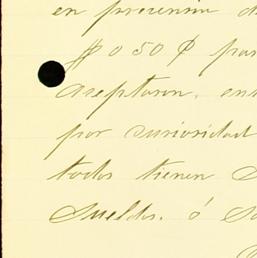 en prevenia d
$0 50 ¢ par
aceptaron, en
por curiosidad
todos tienen
sueldo. ó S